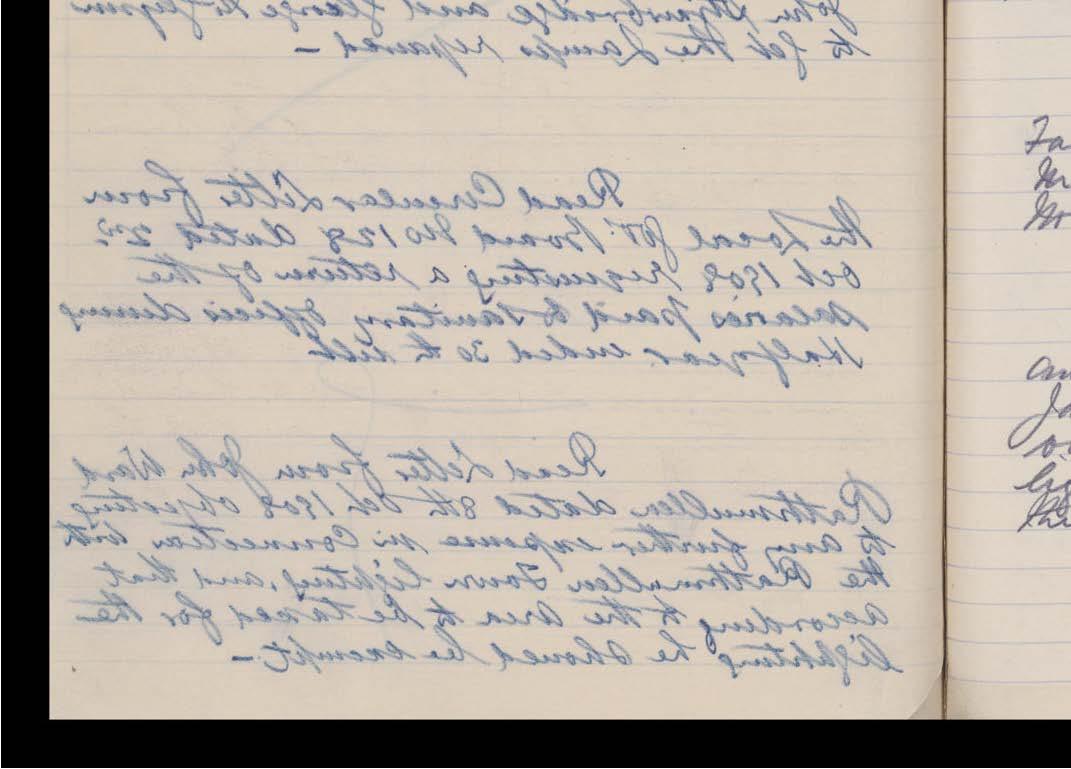 John Strawbridge and George
to get the Lamps repaired –
Read Circular Letter from
the Local Govt Board No 128 dated 2nd
Oct 1908 requesting a return of the
salaries paid to Sanitary Officers during
Half year ended 30th ult
Read Letter from John Ward
Rathmullen dated 8th Oct 1908 objecting
to any further expense in Connection with
the Rathmullen Town lighting, and that
according to the Area to be taxed for the
lighting he should be exempt –
Fa